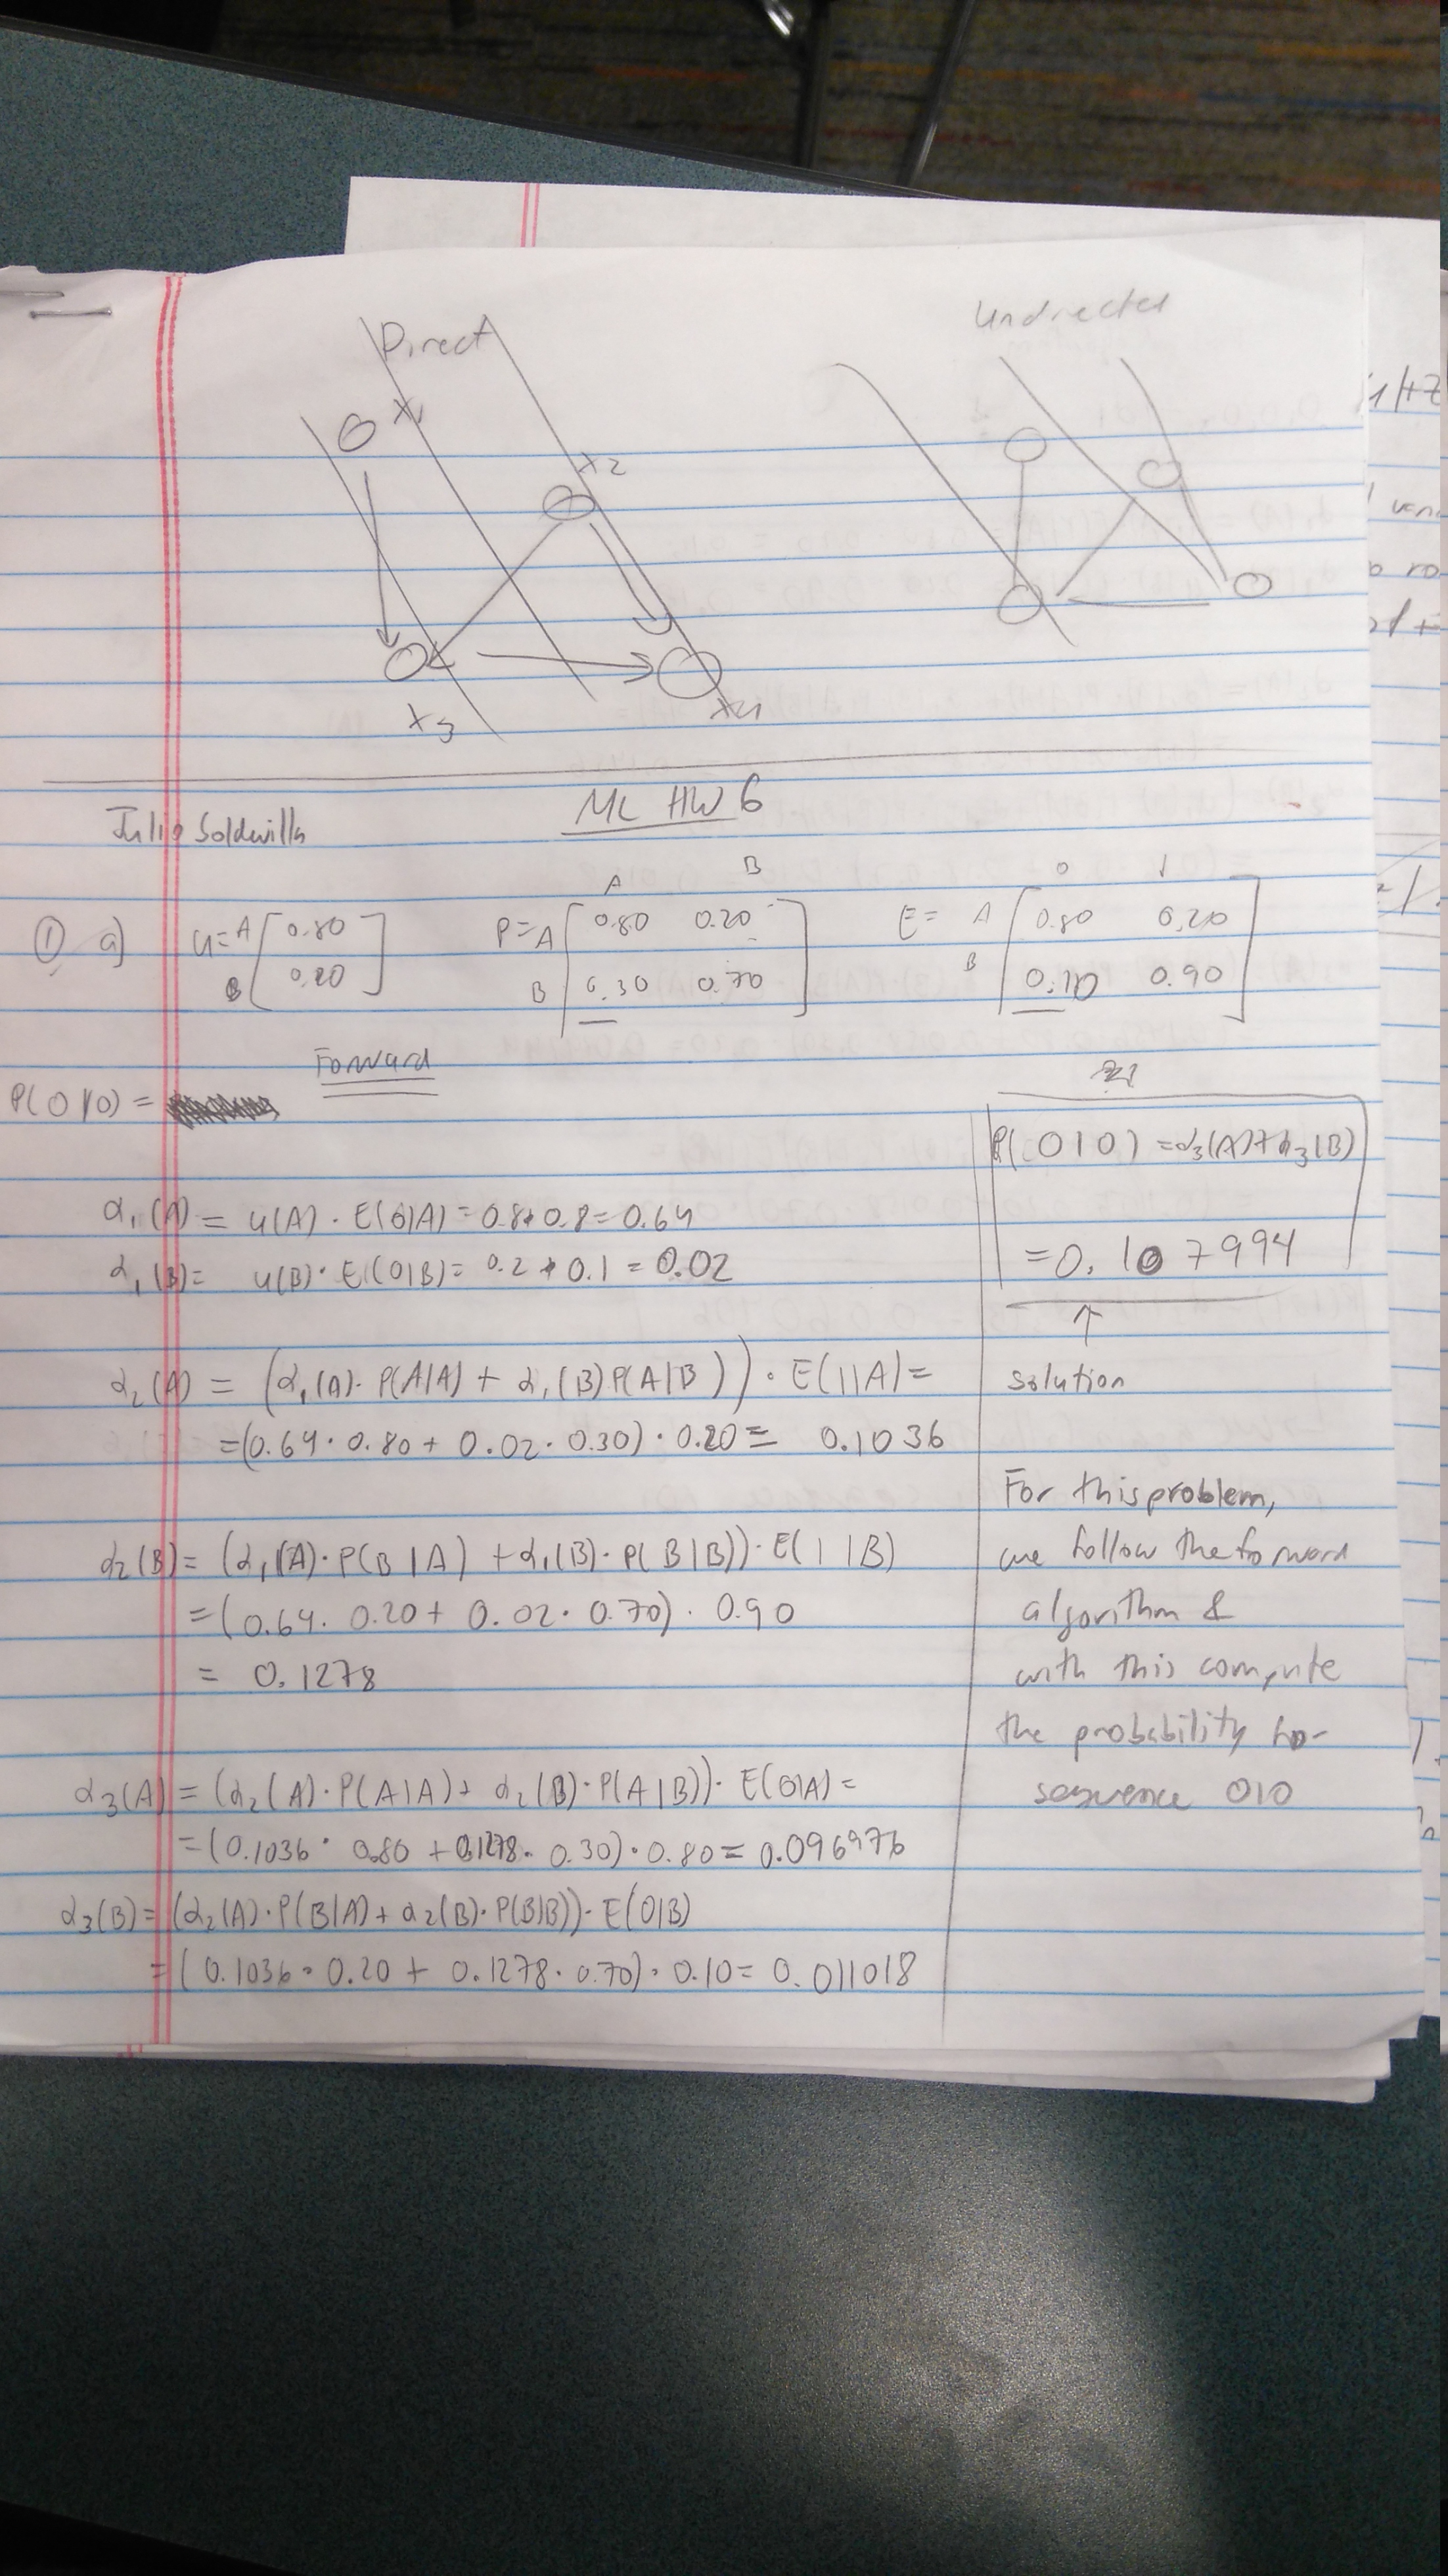 Direct
Undirected
X1
X2
X3
X4
ML HW 6
① a)
u= A [0.80]
B [0.20]
A B
P= A [0.80 0.20]
B [0.30 0.70]
0 1
E= A [0.80 0.20]
B [0.10 0.90]
Forward
P(010) =
α₁(A) = u(A) · E(0|A) = 0.8*0.8 = 0.64
α₁(B) = u(B) · E(0|B) = 0.2 * 0.1 = 0.02
α₂(A) = (α₁(A) · P(A|A) + α₁(B) P(A|B)) · E(1|A) =
=(0.64 · 0.80 + 0.02 · 0.30) · 0.20 = 0.1036
α₂(B) = (α₁(A) · P(B|A) + α₁(B) · P(B|B)) · E(1|B)
=(0.64 · 0.20 + 0.02 · 0.70) · 0.90
= 0.1278
α₃(A) = (α₂(A) · P(A|A) + α₂(B) · P(A|B)) · E(0|A) =
=(0.1036 · 0.80 + 0.1278 · 0.30) · 0.80 = 0.096976
α₃(B) = (α₂(A) · P(B|A) + α₂(B) · P(B|B)) · E(0|B)
=(0.1036 · 0.20 + 0.1278 · 0.70) · 0.10 = 0.011018
P(010) = α₃(A) + α₃(B)
= 0.107994
↑
solution
For this problem,
we follow the forward
algorithm &
with this compute
the probability for
sequence 010